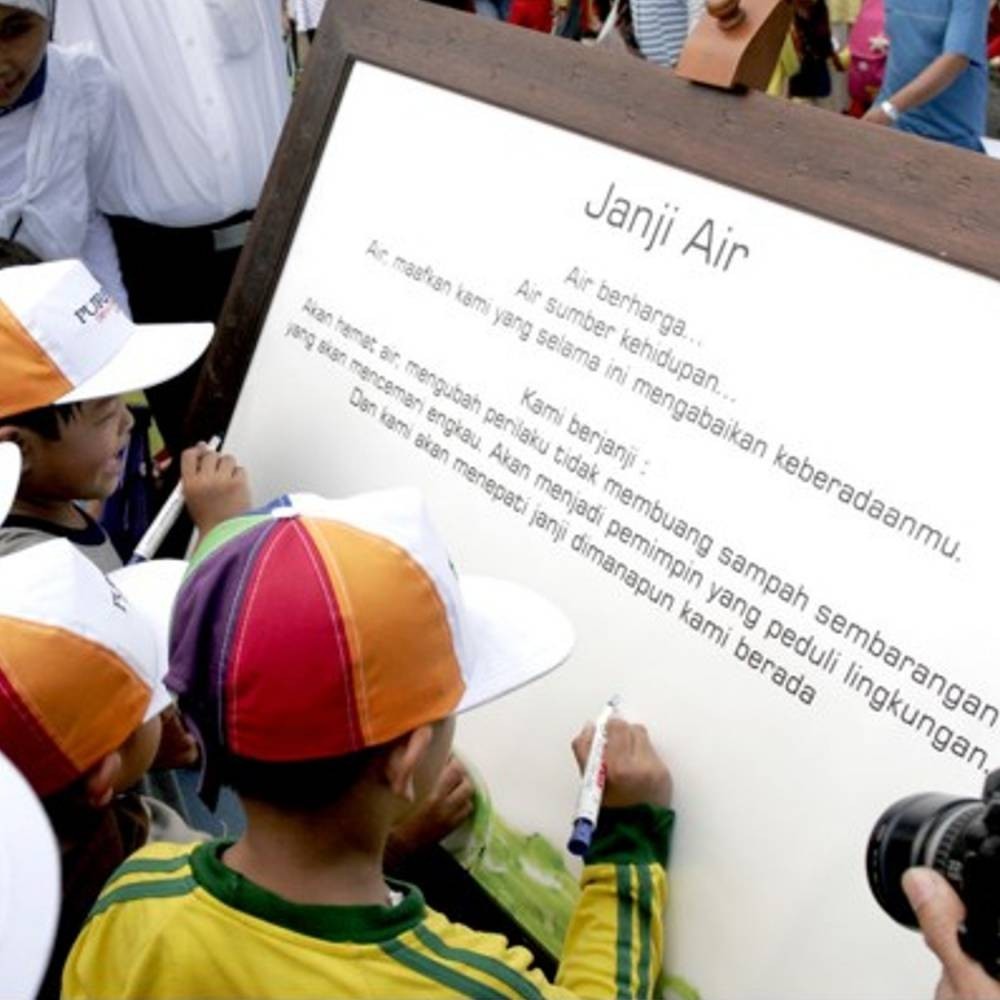 Janji Air
Air berharga...
Air sumber kehidupan...
Air, maafkan kami yang selama ini mengabaikan keberadaanmu.
Kami berjanji :
Akan hemat air, mengubah perilaku tidak membuang sampah sembarangan
yang akan mencemari engkau. Akan menjadi pemimpin yang peduli lingkungan.
Dan kami akan menepati janji dimanapun kami berada